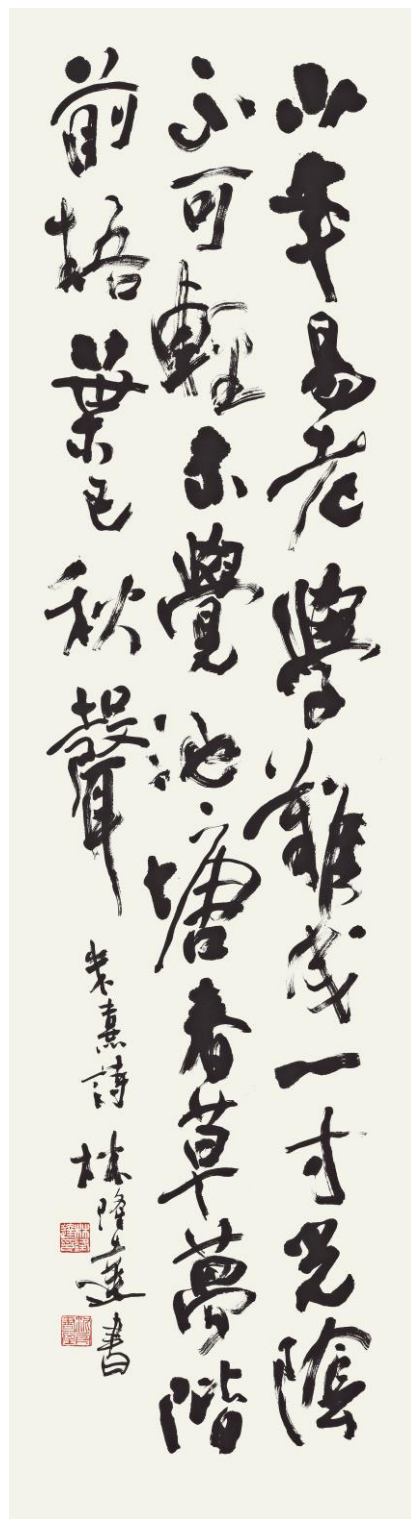 少年易老學難成一寸光陰
不可輕未覺池塘春草夢階
前梧葉已秋聲
朱熹詩 林隆達書